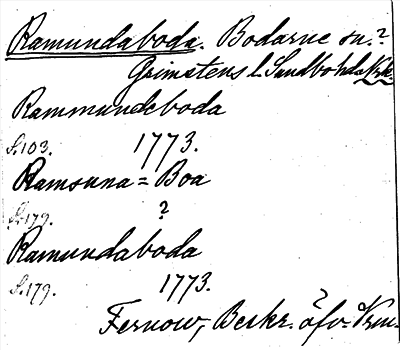 Ramundaboda. Bodarne sn.?
Grimstens l. Sundbohds Nrk.
Rammundeboda
S.103. 1773.
Ramsuna = Boa
S.179. ?
Ramundaboda
S.179. 1773.
Fernow, Beskr. öfv. Vrm.